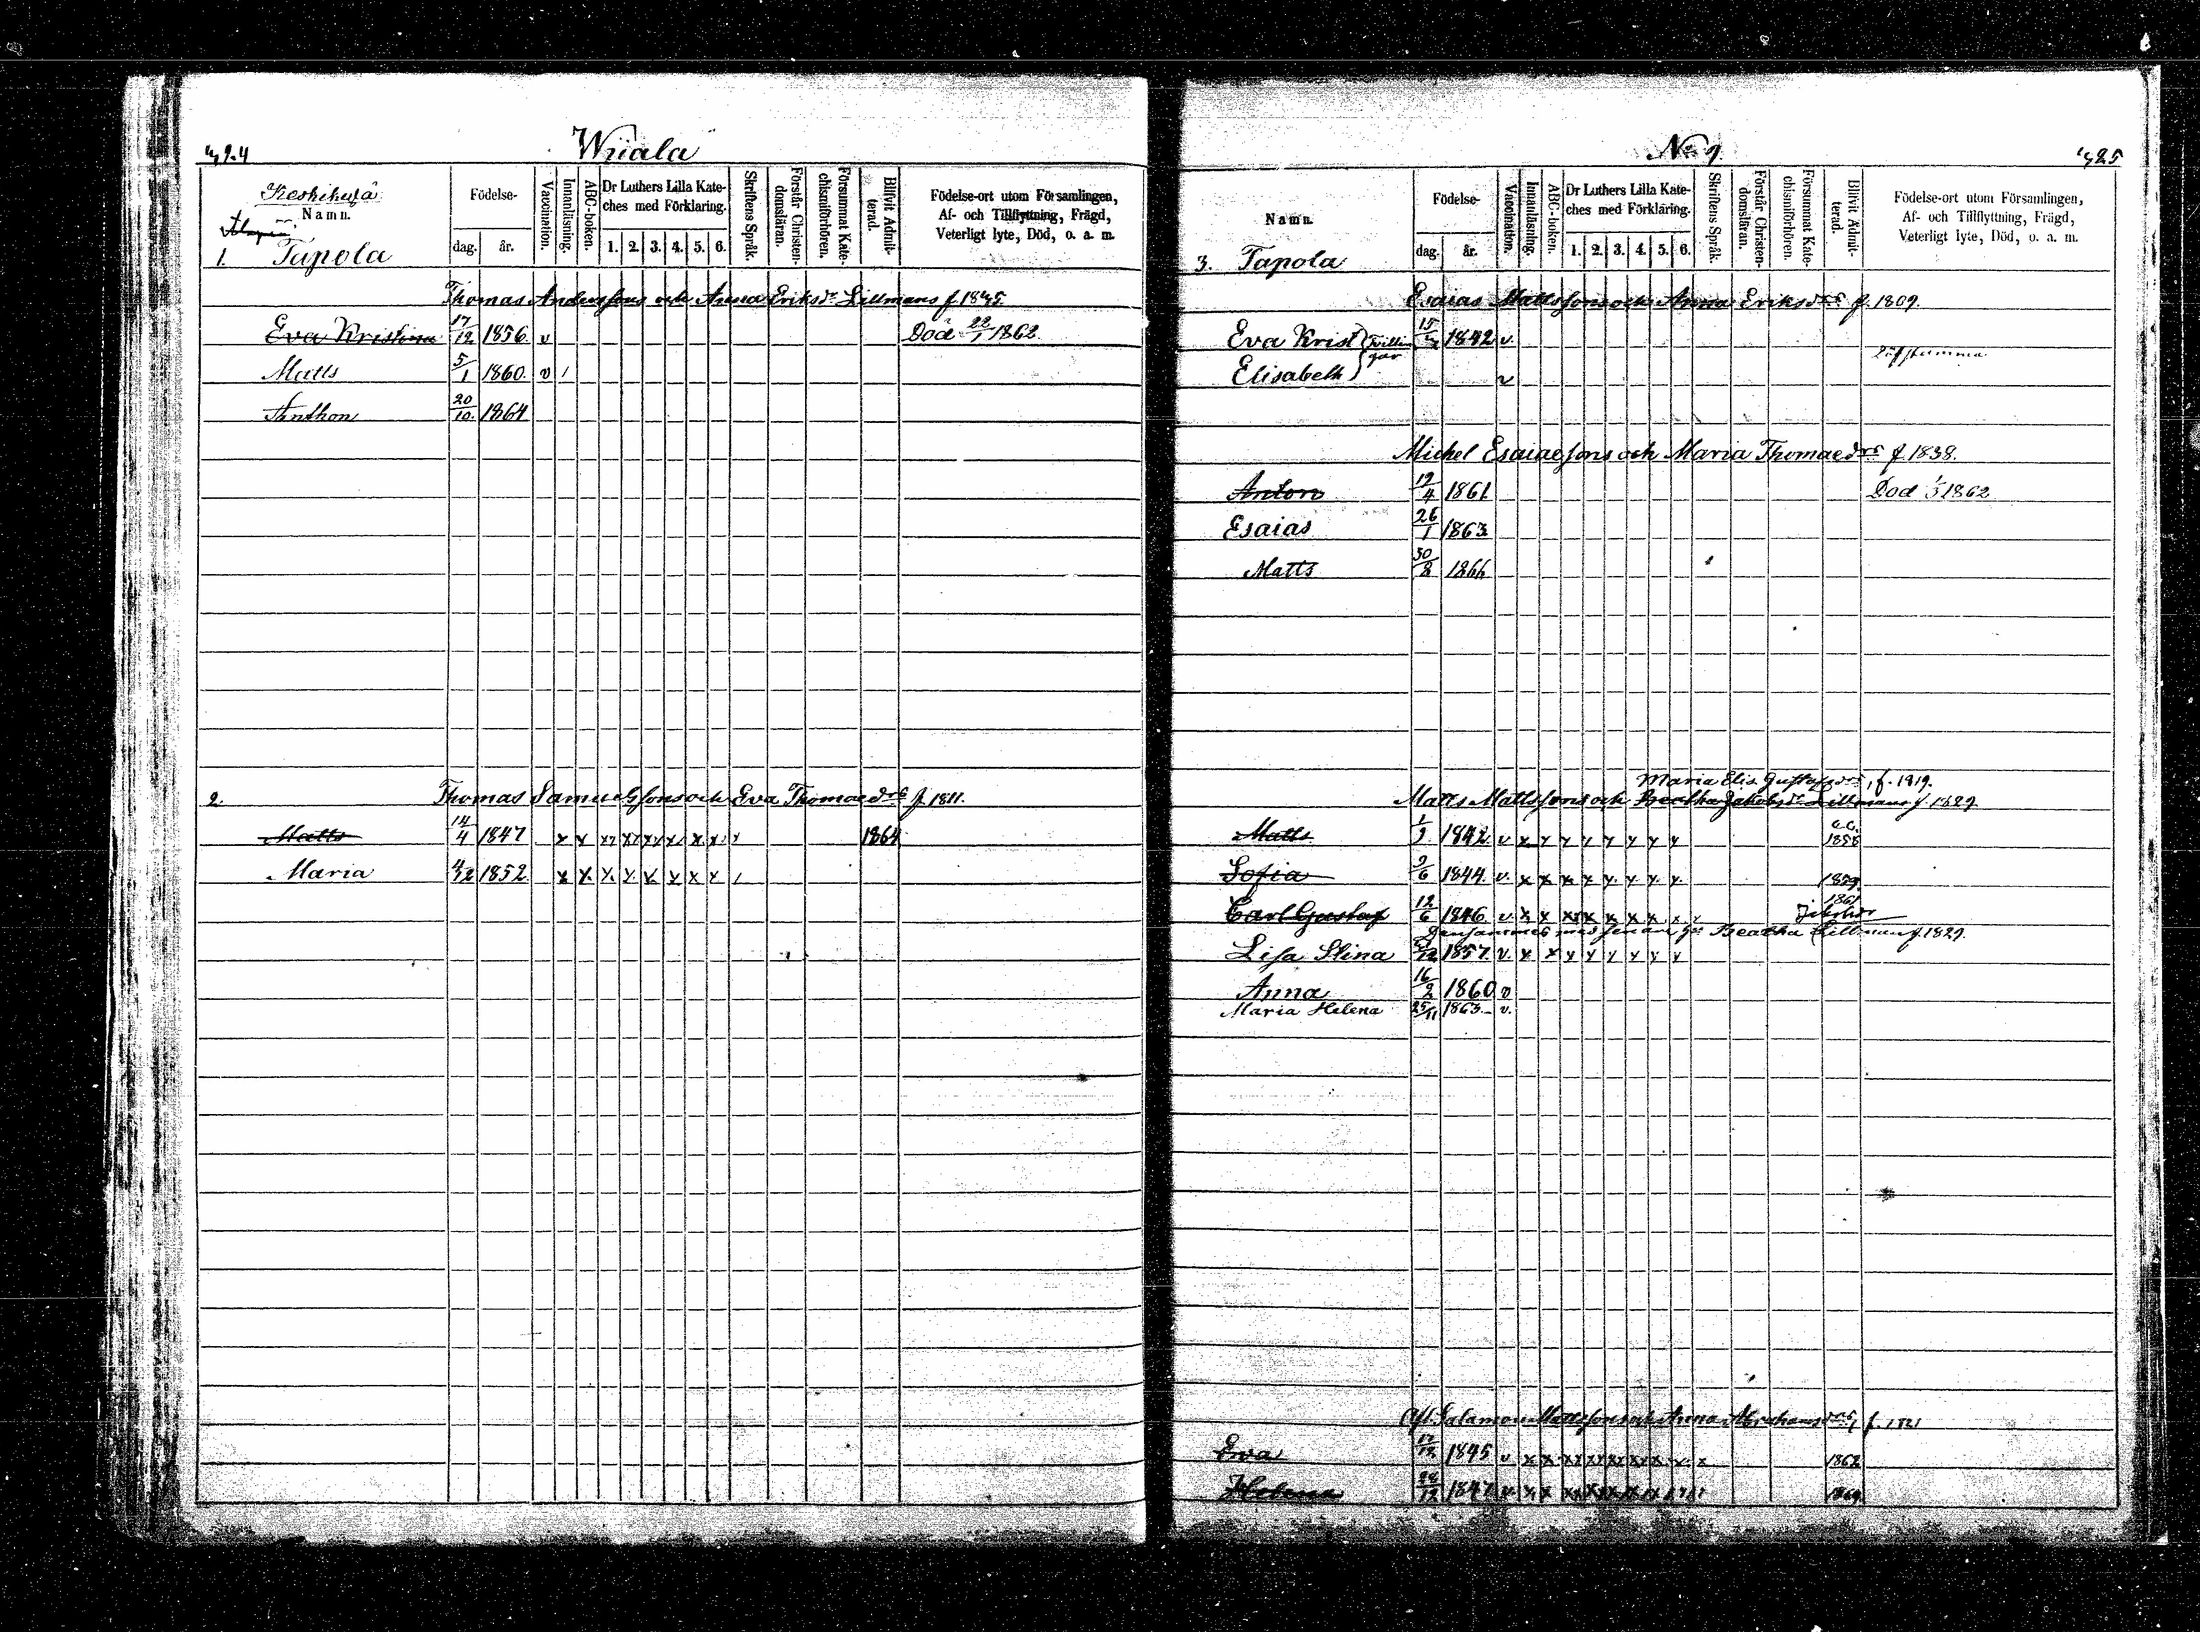 424 Wiiala
Keskikylä
Namn.
1. Tapola
Födelse-
dag. år.
Vaccination.
Innanläsning.
ABC-boken.
Dr Luthers Lilla Kate-
ches med Förklaring.
1. 2. 3. 4. 5. 6.
Skriftens Språk.
Förstår Christen-
domsläran.
Försummat Kate-
chismiförhören.
Blifvit Admit-
terad.
Födelse-ort utom Församlingen,
Af- och Tillflyttning, Frägd,
Veterligt lyte, Död, o. a. m.
Thomas Anderssons och Anna Eriksdr Lillmans f. 1835
Eva Kristina 17/12 1856. v Död 22/1 1862.
Matts 5/1 1860. v /
Anthon 20/10. 1864
2. Thomas Samuelssons och Eva Thomaedrs f. 1811.
Matts 14/4 1847 x x x x x x x x x 1864
Maria 4/12 1852. x x x x x x x x /
No 9. 425
Namn.
3. Tapola
Födelse-
dag. år.
Vaccination.
Innanläsning.
ABC-boken.
Dr Luthers Lilla Kate-
ches med Förklaring.
1. 2. 3. 4. 5. 6.
Skriftens Språk.
Förstår Christen-
domsläran.
Försummat Kate-
chismiförhören.
Blifvit Admit-
terad.
Födelse-ort utom Församlingen,
Af- och Tillflyttning, Frägd,
Veterligt lyte, Död, o. a. m.
Esaias Mattssons och Anna Eriksdrs f. 1809.
Eva Krist } Tvillin 1842 v.
Elisabeth } gar v
Michel Esaiaessons och Maria Thomaedrs f. 1838.
Anton 19/4 1861 Död 1862
Esaias 26/1 1863
Matts 30/8 1866
Maria Elis. Gustafsdrs, f. 1819.
Matts Mattssons och Beatha Jakobsdr Lillmans f. 1829
Matts 1842 v x x x x x x x x 1858
Sofia 9/6 1844 v. x x x x x x x x 1859
Carl Gustaf 12/6 1846 v. x x x x x x x x x 1861
Densammes med senare hu Beatha Lillman f. 1829.
Lisa Stina 1857 v. x x x x x x x x
Anna 16/2 1860 v
Maria Helena 25/11 1863 v.
Afl. Salamon Mattssons och Anna Abrahamsdrs, f. 1821
Eva 1845 v x x x x x x x x x 1862
Helena 1847 v. x x x x x x x x 1864